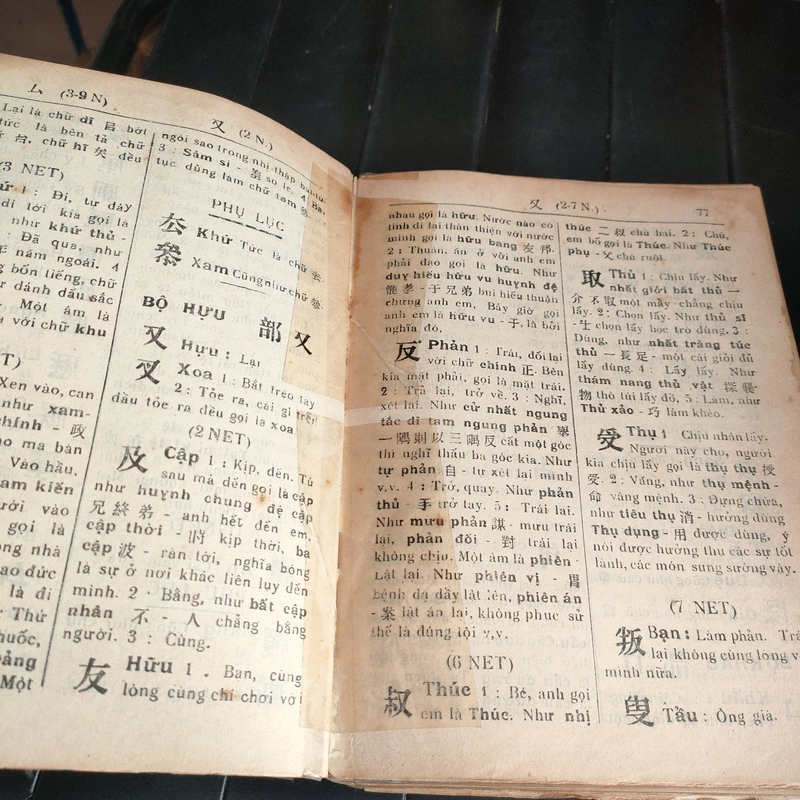 厶 (3-9 N)
Lại là chữ dĩ 㠯 bớt
tức là bên tả chữ
台, chữ hĩ 矣 đều
(3 NET)
1 : Đi, tự đây
đi tới kia gọi là
như khứ thủ -
: Đã qua, như
năm ngoái. 4
bốn tiếng, chữ
đánh dấu sắc
Một âm là
với chữ khu
NET)
Xen vào, can
như xam-
chính - 政
ma bàn
Vào hầu,
tam kiến
Người vào
gọi là
nhà
đạo đức
là đi
: Thứ
thuốc,
Một
又 (2 N.)
ngôi sao trong nhị thập bát tú.
3 : Sâm si - 差 so le. 4 Ba,
tục dùng làm chữ tam
PHỤ LỤC
厺 Khứ Tức là chữ 去
叅 Xam Cũng như chữ 參
BỘ HỰU 部 又
又 Hựu : Lại
叉 Xoa 1 : Bắt tréo tay
2 : Tỏe ra, cái gì trên
đầu tỏe ra đều gọi là xoa
(2 NET)
及 Cập 1 : Kịp, đến. Từ
sau mà đến gọi là cập
như huynh chung đệ cập
兄終弟 - anh hết đến em,
cập thời - 時 kịp thời, ba
cập 波 - ràn tới, nghĩa bóng
là sự ở nơi khác liên lụy đến
mình. 2 - Bằng, như bất cập
nhân 不 - 人 chẳng bằng
người. 3 : Cùng.
友 Hữu 1 . Bạn, cùng
lòng cùng chí chơi với
又 (2-7 N.) 77
nhau gọi là hữu. Nước nào có
tình đi lại thân thiện với nước
mình gọi là hữu bang 友邦.
2 : Thuận. ăn ở với anh em
phải đạo gọi là hữu. Như
duy hiếu hữu vu huynh đệ
惟孝 - 于兄弟 bui hiếu thuận
chưng anh em, Bây giờ gọi
anh em là hữu vu - 于, là bởi
nghĩa đó.
反 Phản 1 : Trái, đối lại
với chữ chính 正. Bên
kia mặt phải, gọi là mặt trái.
2 : Trả lại, trở về. 3 : Nghĩ,
xét lại. Như cử nhất ngung
tắc dĩ tam ngung phản 舉
一隅則以三隅反 cất một góc
thì nghĩ thấu ba góc kia. Như
tự phản 自 - tự xét lại mình
v.v. 4 : Trở, quay. Như phản
thủ - 手 trở tay. 5 : Trái lại.
Như mưu phản 謀 - mưu trái
lại, phản đối - 對 trái lại
không chịu. Một âm là phiên
Lật lại. Như phiên vị - 胃
bệnh dạ dầy lật lên, phiên án
- 案 lật án lại, không phục sử
thế là đúng tội v.v.
(6 NET)
叔 Thúc 1 : Bé, anh gọi
em là Thúc. Như nhị
thúc 二叔 chú hai. 2 : Chú,
em bố gọi là Thúc. Như Thúc
phụ - 父 chú ruột.
取 Thủ 1 : Chịu lấy. Như
nhất giới bất thủ 一
介不取 một mảy chẳng chịu
lấy. 2 : Chọn lấy. Như thủ sĩ
- 士 chọn lấy học trò dùng. 3 :
Dùng, như nhất tràng túc
thủ 一長足 - một cái giỏi đủ
lấy dùng. 4 : Lấy lấy. Như
thám nang thủ vật 探囊 -
物 thò túi lấy đồ, 5 : Làm, như
Thủ xảo - 巧 làm khéo.
受 Thụ 1 Chịu nhận lấy.
Người này cho, người
kia chịu lấy gọi là thụ thụ 授
受. 2 : Vâng, như thụ mệnh -
命 vâng mệnh. 3 : Đựng chứa,
như tiêu thụ 消 - hưởng dùng
Thụ dụng - 用 được dùng, ý
nói được hưởng thu các sự tốt
lành, các món sung sướng vậy.
(7 NET)
叛 Bạn : Làm phản. Trái
lại không cùng lòng với
mình nữa.
叟 Tẩu : Ông già.